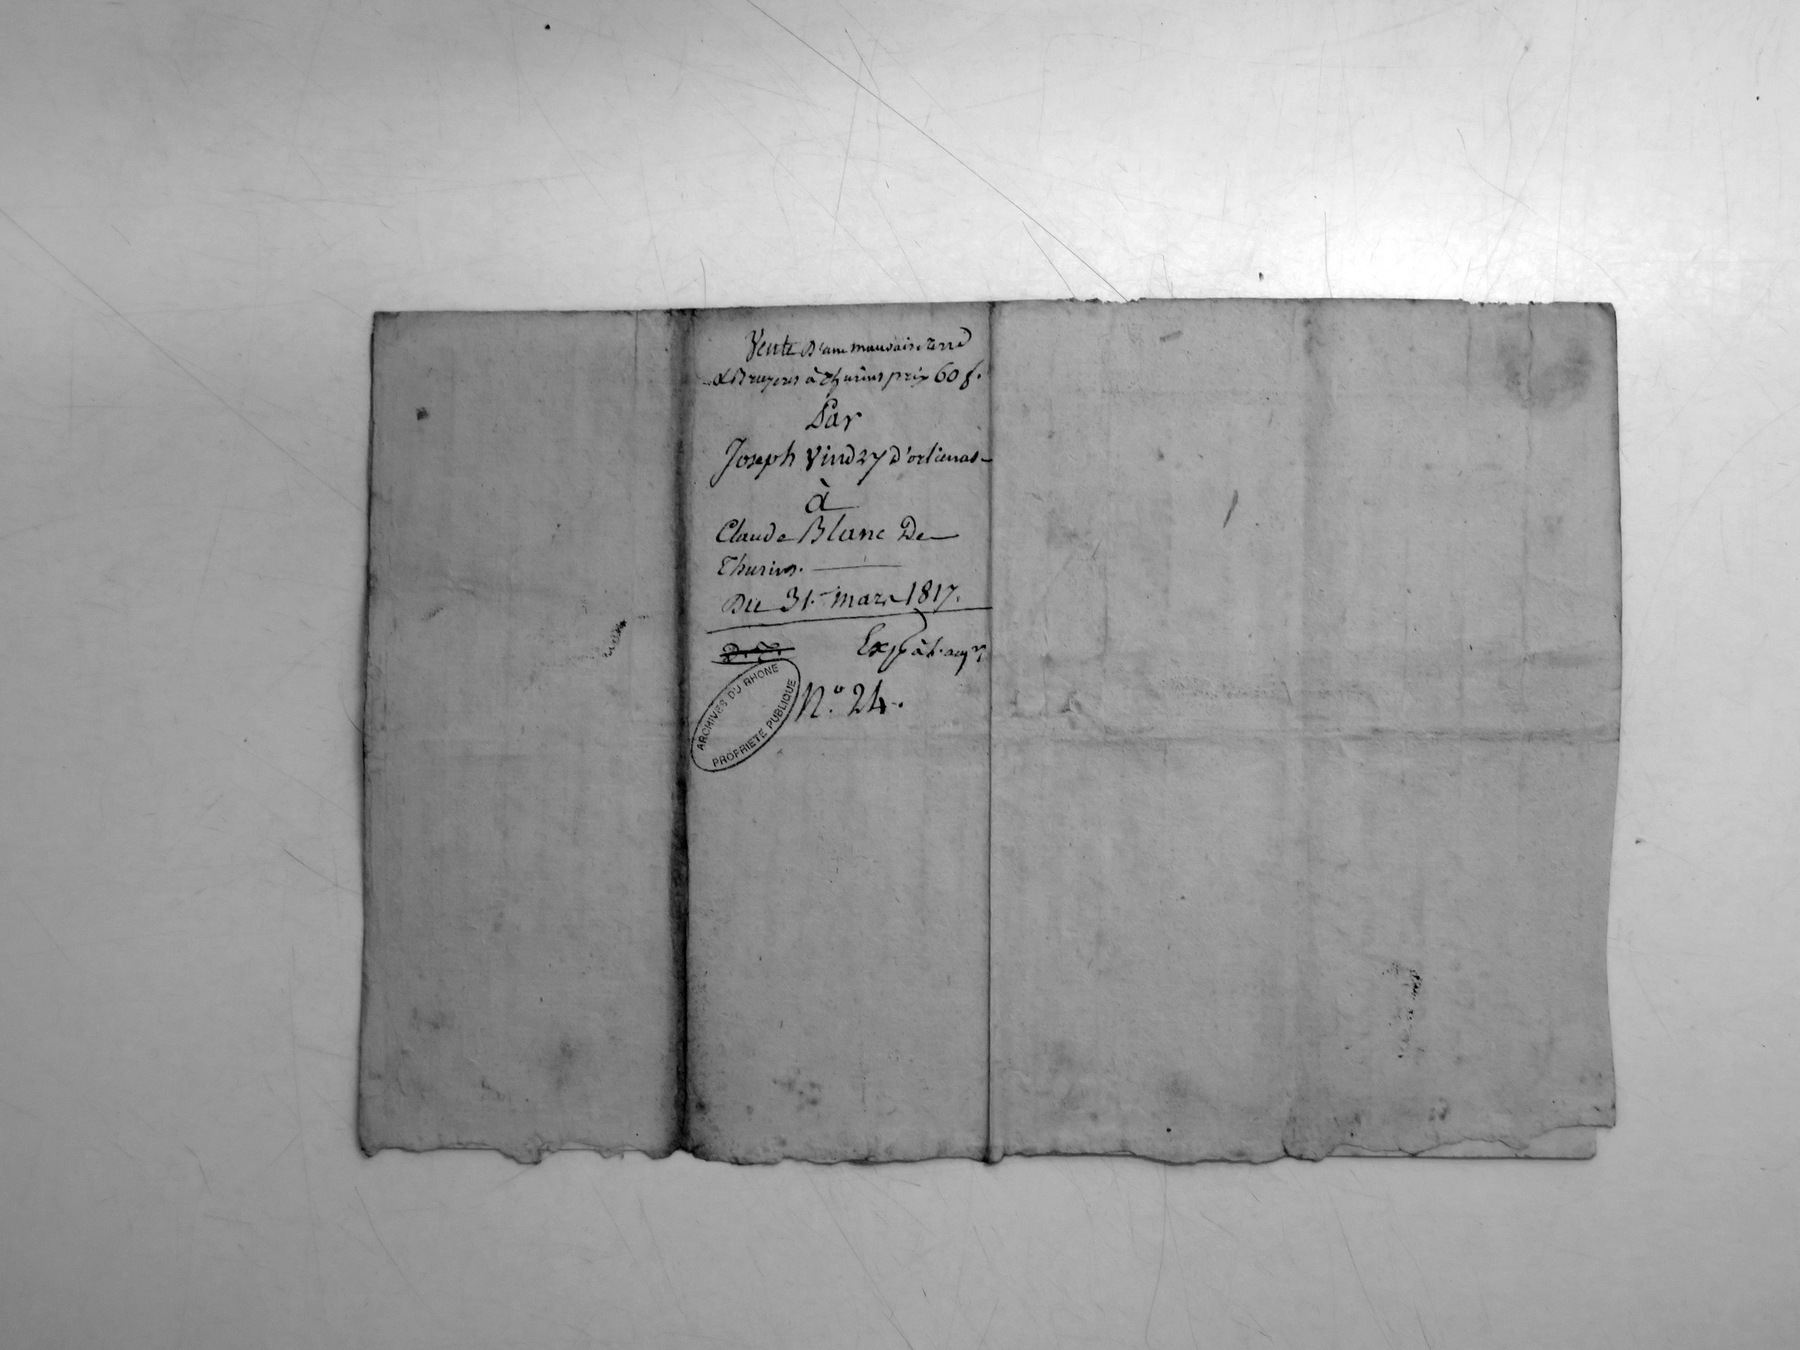 Vente d'une mauvaise terre
& Bruyeres à Thurins prix 60 f.
Par
Joseph Vindry d'orlienas
à
Claude Blanc De
Thurins.
Du 31. mars 1817.
Exp à l'acq.r
ARCHIVES DU RHONE
PROPRIETE PUBLIQUE
N.o 24.